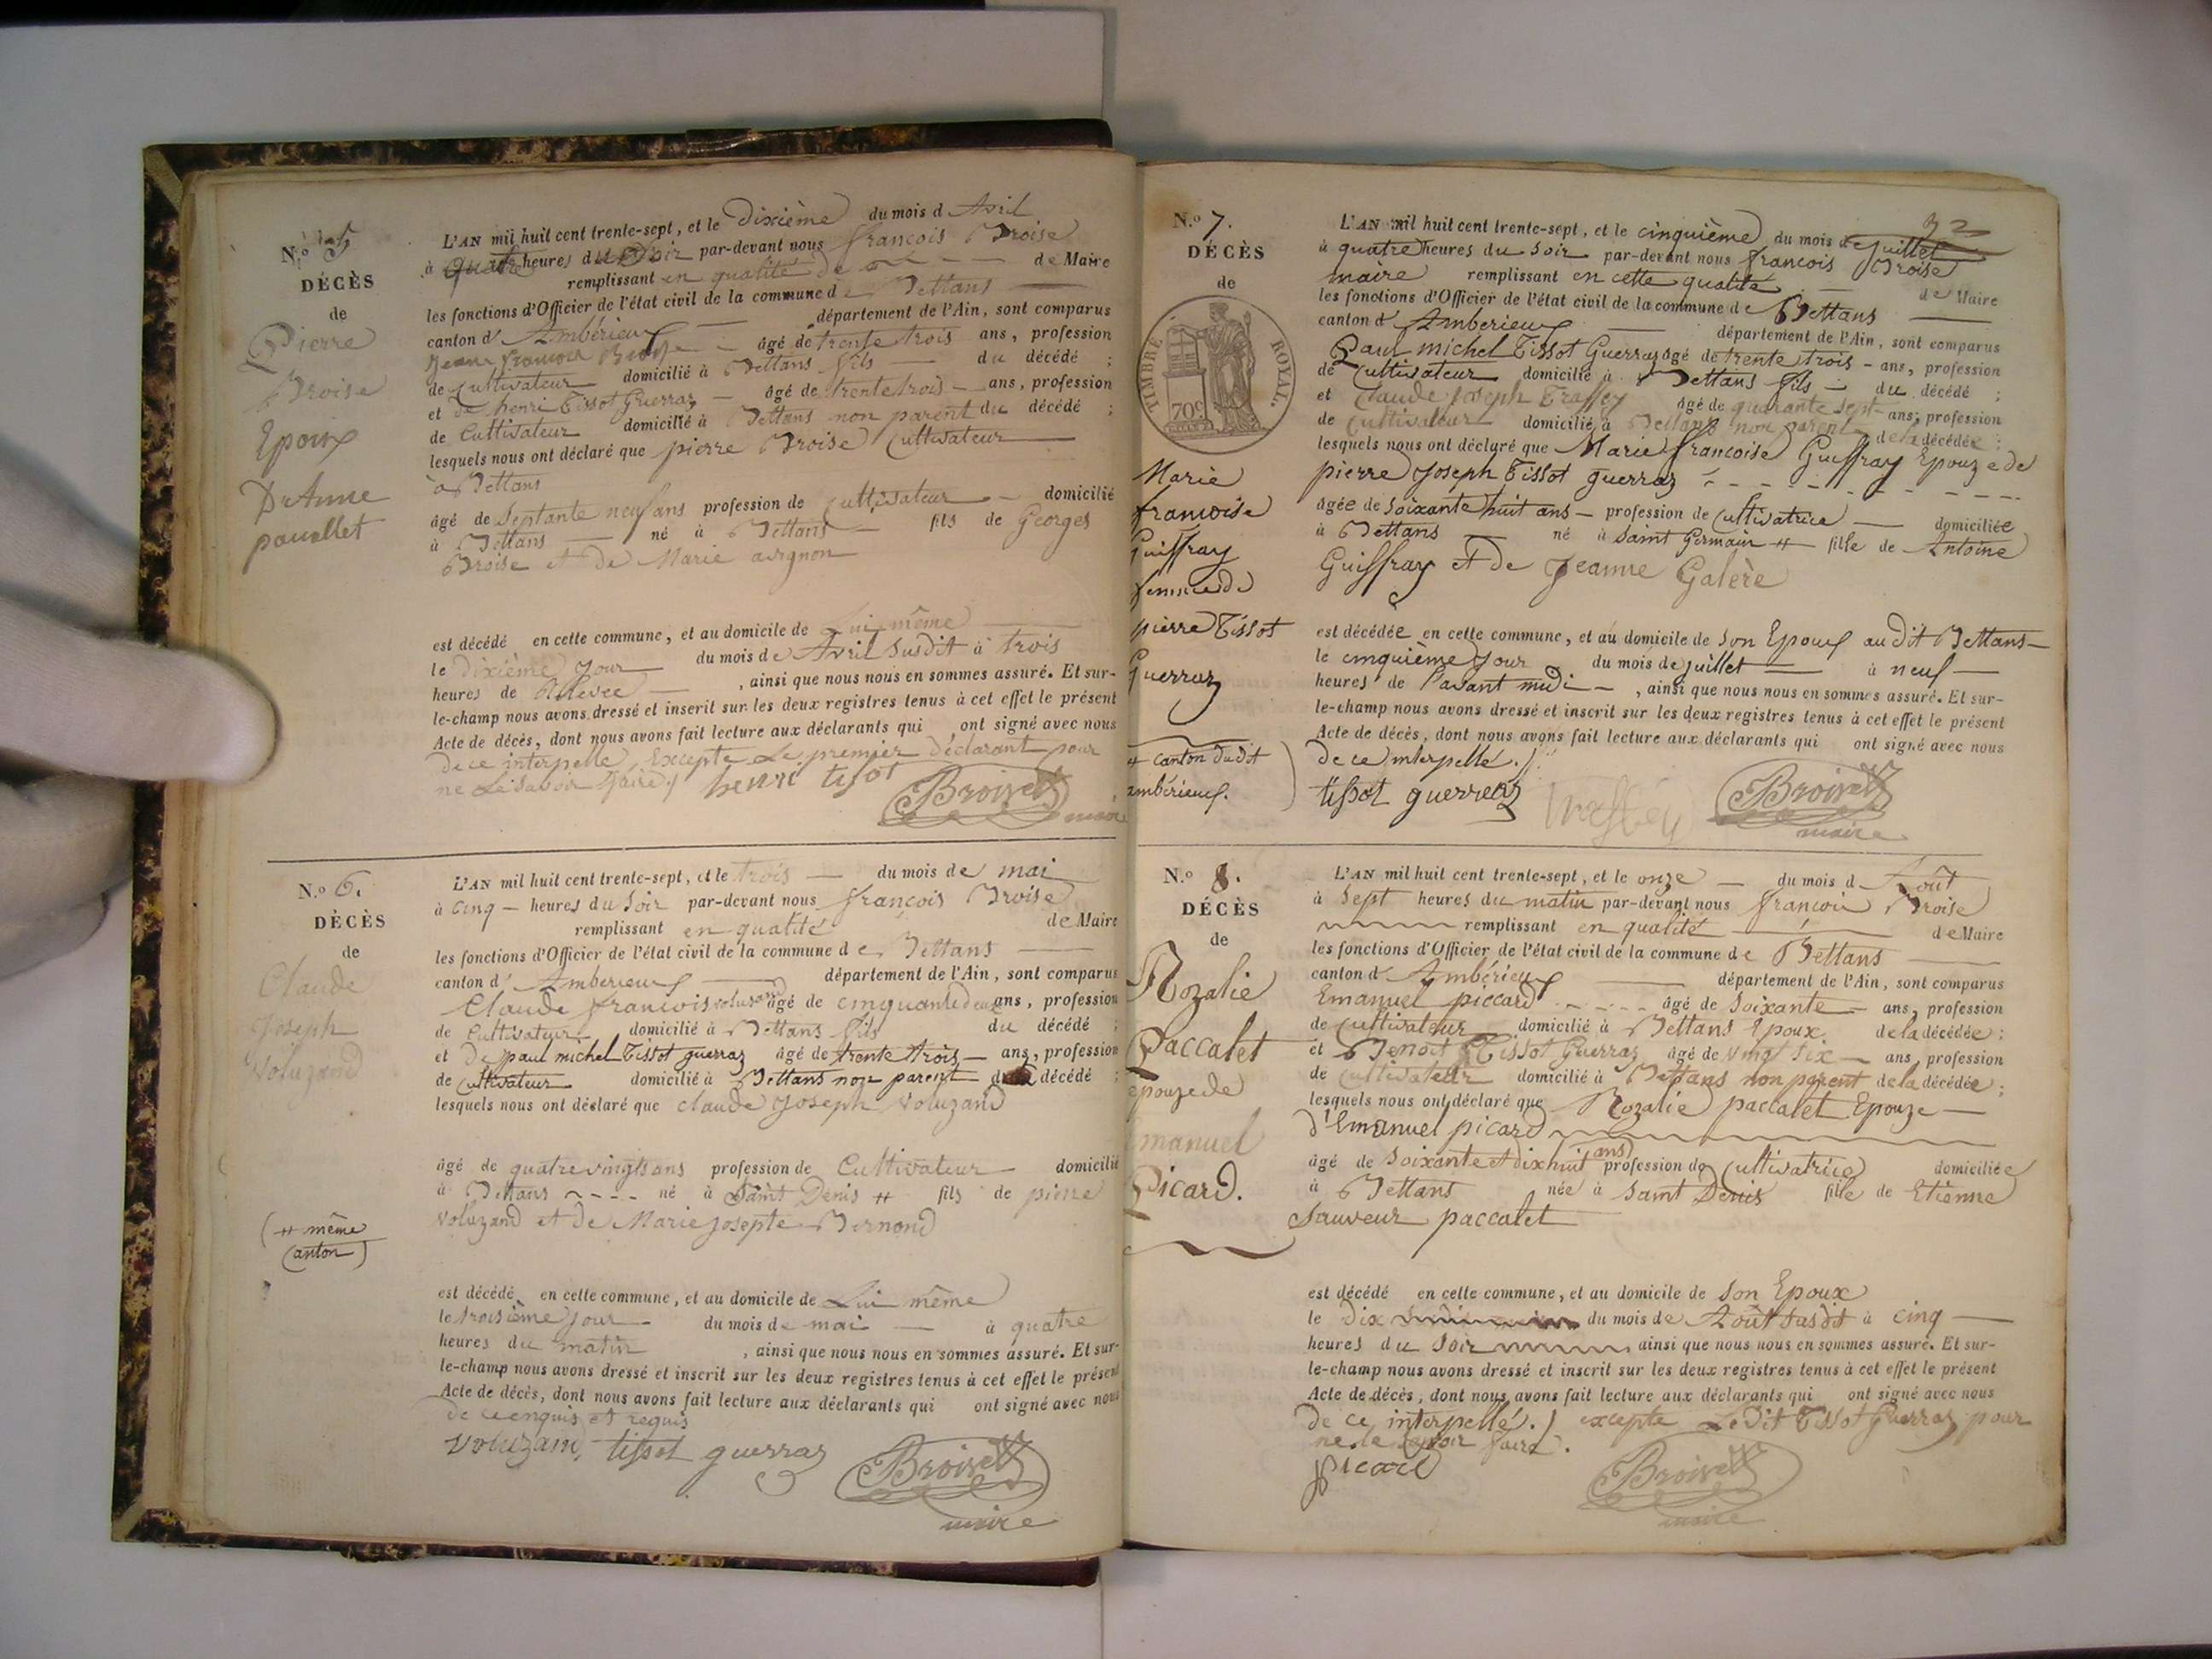 N.º 5
DÉCÈS
de
Pierre
Broise
Epoux
De Anne
pacallet
L'AN mil huit cent trente-sept, et le Dixième du mois d Avril
à quatre heures du Soir par-devant nous francois Broise
remplissant en qualité de Maire
les fonctions d'Officier de l'état civil de la commune de Bettans
canton d' Ambérieux département de l'Ain, sont comparus
Jean francois Broise âgé de trente trois ans, profession
de Cultivateur domicilié à Bettans fils du décédé ;
et de henri Tissot Guerraz âgé de trente trois ans, profession
de Cultivateur domicilié à Bettans non parent du décédé ;
lesquels nous ont déclaré que pierre Broise Cultivateur
à Bettans
âgé de Septante neuf ans profession de Cultivateur domicilié
à Bettans né à Bettans fils de Georges
Broise et de Marie avignon
est décédé en cette commune, et au domicile de Lui même
le dixième jour du mois de Avril Susdit à trois
heures de Relevée , ainsi que nous nous en sommes assuré. Et sur-
le-champ nous avons dressé et inscrit sur les deux registres tenus à cet effet le présent
Acte de décès, dont nous avons fait lecture aux déclarants qui ont signé avec nous
de ce interpellé, Excepte Le premier Déclarant pour
ne Le Savoir faire./ henri tisot Broise maire
N.º 6.
DÉCÈS
de
Claude
Joseph
Voluzand
(# même
Canton)
L'AN mil huit cent trente-sept, et le trois du mois de mai
à cinq heures du Soir par-devant nous françois Broise
remplissant en qualité de Maire
les fonctions d'Officier de l'état civil de la commune de Bettans
canton d' Amberieux département de l'Ain, sont comparus
Claude francois voluzand âgé de cinquante deux ans, profession
de Cultivateur domicilié à Bettans fils du décédé ;
et De paul michel Tissot guerraz âgé de trente trois ans, profession
de Cultivateur domicilié à Bettans non parent du décédé ;
lesquels nous ont déclaré que claude Joseph Voluzand
âgé de quatre vingts ans profession de Cultivateur domicilié
à Bettans né à Saint Denis # fils de pierre
Voluzand et de Marie Josepte Bernond
est décédé en cette commune, et au domicile de Lui même
le troisième jour du mois de mai à quatre
heures du matin , ainsi que nous nous en sommes assuré. Et sur-
le-champ nous avons dressé et inscrit sur les deux registres tenus à cet effet le présent
Acte de décès, dont nous avons fait lecture aux déclarants qui ont signé avec nous
de ce enquis et requis
Voluzand tissot guerraz Broise
maire
N.º 7.
DÉCÈS
de
TIMBRE ROYAL.
70c
Marie
francoise
Guiffray
femme de
pierre Tissot
Guerraz
# canton du dit
ambérieux.
92
L'AN mil huit cent trente-sept, et le cinquième du mois de Juillet
à quatre heures du Soir par-devant nous francois Broise
maire remplissant en cette qualité de Maire
les fonctions d'Officier de l'état civil de la commune de Bettans
canton d' Amberieux département de l'Ain, sont comparus
Paul michel Tissot Guerraz âgé de trente trois ans, profession
de Cultivateur domicilié à Bettans fils du décédé ;
et Claude Joseph Traffey âgé de quarante sept ans, profession
de Cultivateur domicilié à Bettans non parent de la décédée ;
lesquels nous ont déclaré que Marie francoise Guiffray Epouze de
pierre Joseph Tissot guerraz
âgée de Soixante huit ans profession de Cultivatrice domiciliée
à Bettans né à Saint Germain # fille de Antoine
Guiffray et de Jeanne Galère
est décédée en cette commune, et au domicile de Son Epoux au dit Bettans
le cinquième Jour du mois de juillet à neuf
heures de l'avant midi , ainsi que nous nous en sommes assuré. Et sur-
le-champ nous avons dressé et inscrit sur les deux registres tenus à cet effet le présent
Acte de décès, dont nous avons fait lecture aux déclarants qui ont signé avec nous
de ce interpellé./.
tissot guerraz Broise
maire
N.º 8.
DÉCÈS
de
Rozalie
Paccalet
épouze de
Emanuel
Picard.
L'AN mil huit cent trente-sept, et le onze du mois d Août
à Sept heures du matin par-devant nous françois Broise
remplissant en qualité de Maire
les fonctions d'Officier de l'état civil de la commune de Bettans
canton d' Ambérieux département de l'Ain, sont comparus
Emanuel piccard âgé de Soixante ans, profession
de Cultivateur domicilié à Bettans Epoux de la décédée ;
et Benoit Tissot Guerraz âgé de vingt six ans, profession
de Cultivateur domicilié à Bettans non parent de la décédée ;
lesquels nous ont déclaré que Rozalie paccalet Epouze
d'Emanuel picard
âgé de Soixante et dix huit ans profession de Cultivatrice domiciliée
à Bettans née à Saint Denis fille de Etienne
Sauveur paccalet
est décédé en cette commune, et au domicile de Son Epoux
le Dix du mois de Août Susdit à cinq
heures du Soir ainsi que nous nous en sommes assuré. Et sur-
le-champ nous avons dressé et inscrit sur les deux registres tenus à cet effet le présent
Acte de décès, dont nous avons fait lecture aux déclarants qui ont signé avec nous
de ce interpellé./ excepte Le Dit Tissot Guerraz pour
ne le Savoir faire.
picard Broise
maire